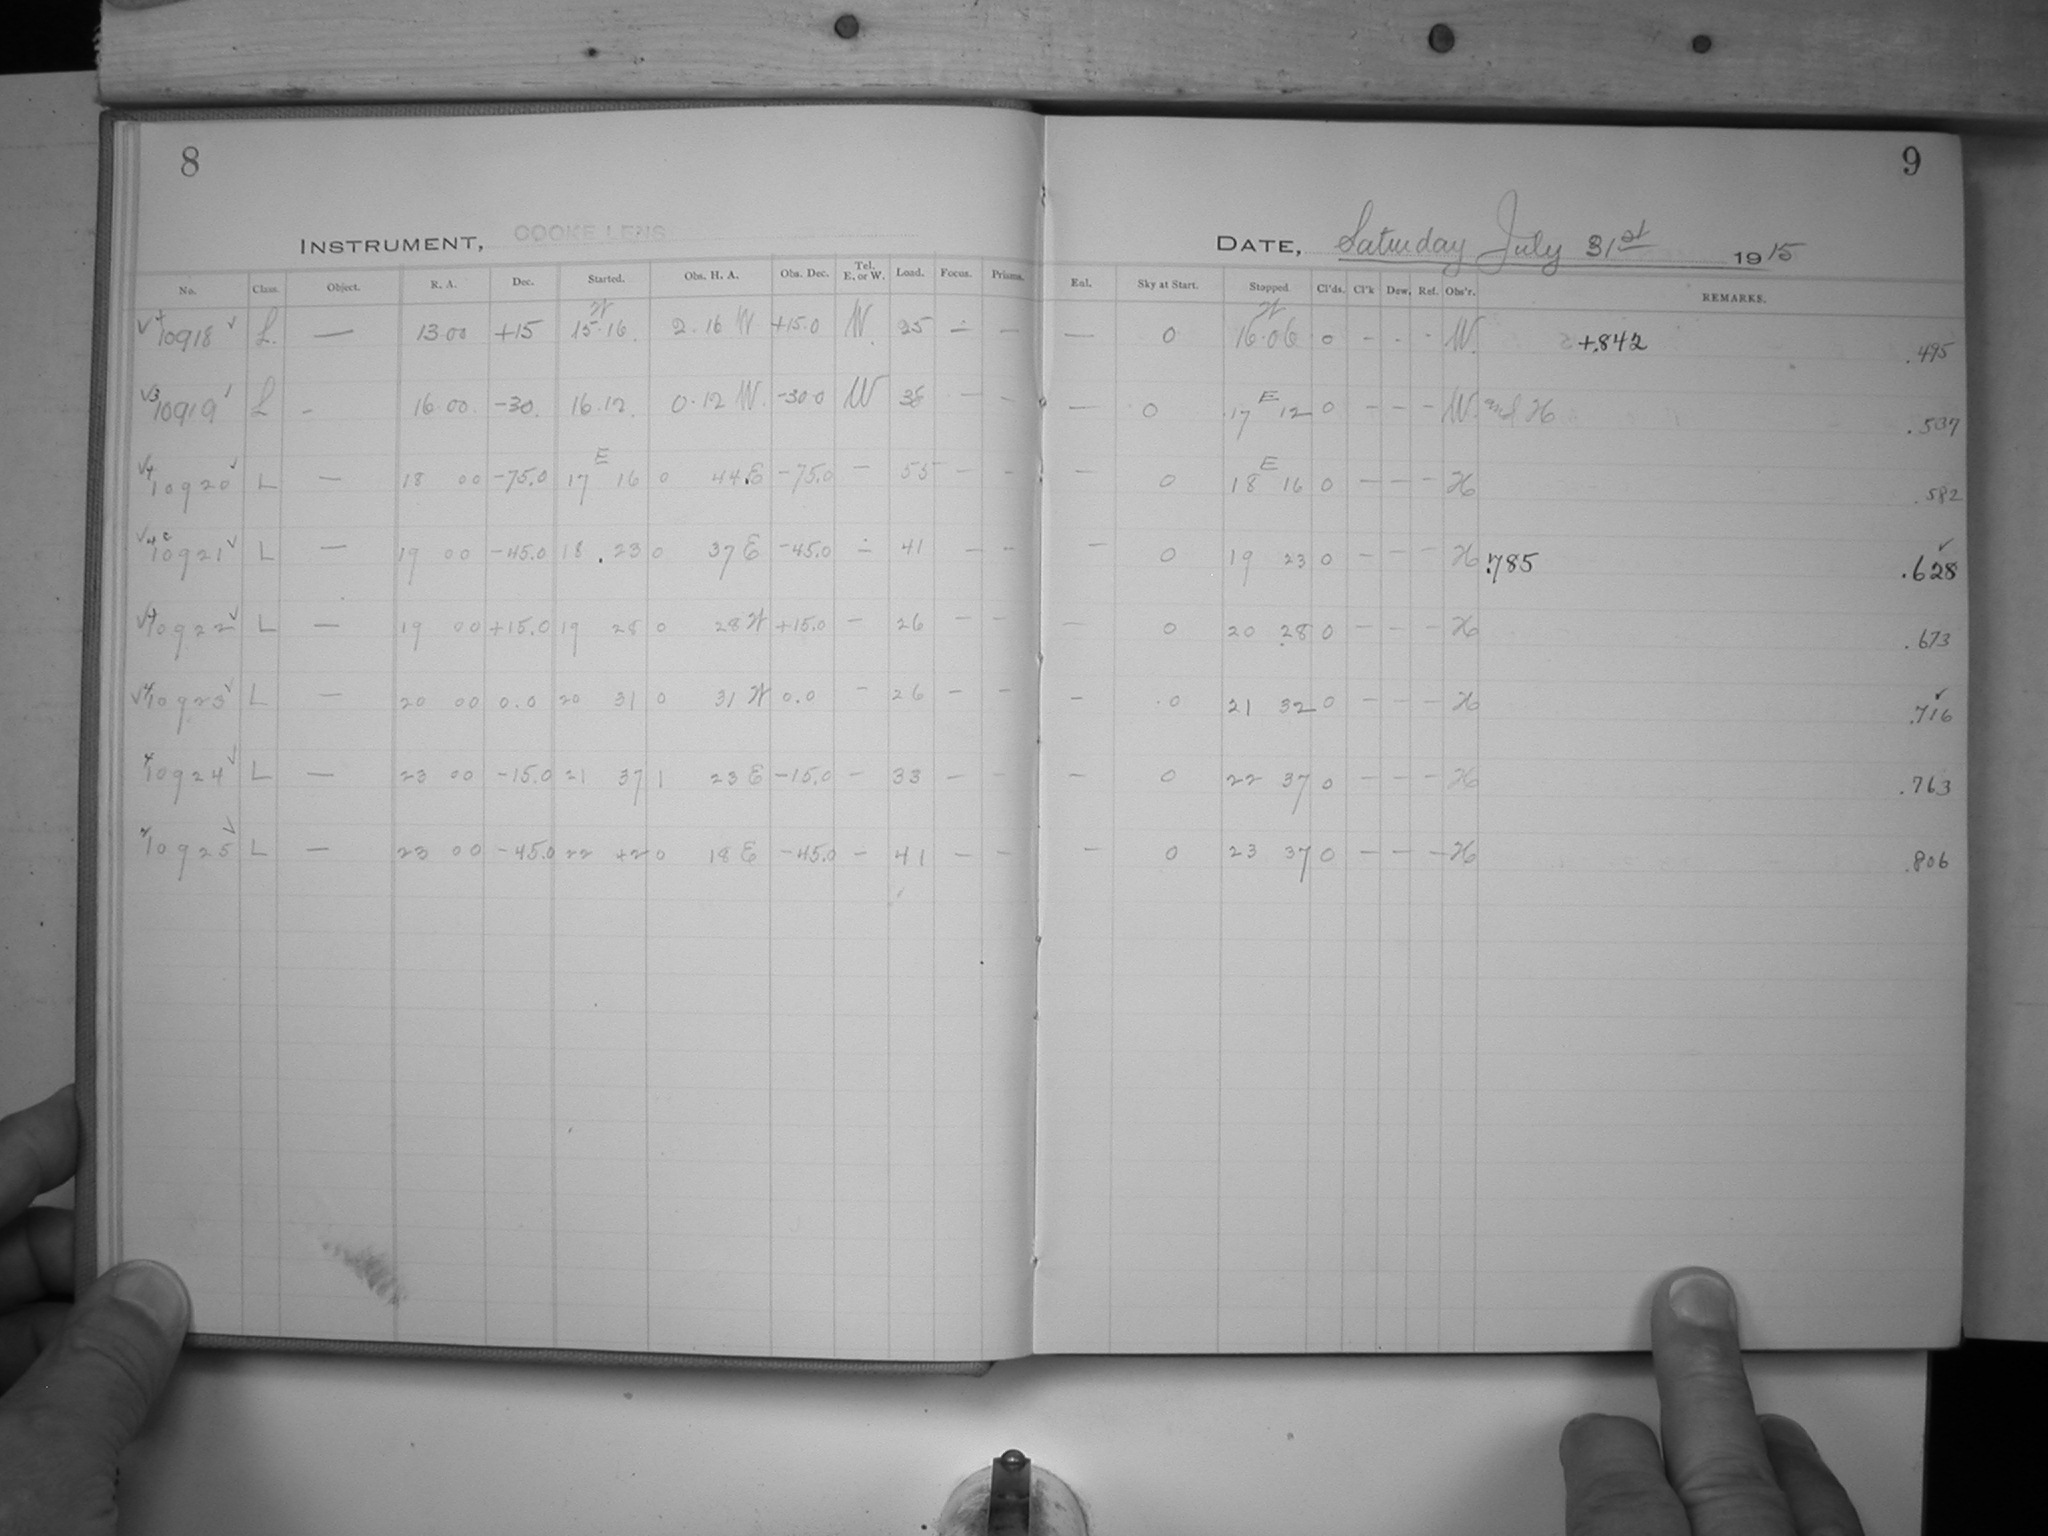 8
9
INSTRUMENT, COOKE LENS
DATE, Saturday July 31st 1915
No. Class. Object. R. A. Dec. Started. Obs. H. A. Obs. Dec. Tel. E. or W. Load. Focus. Prisms. Eal. Sky at Start. Stopped Cl'ds. Cl'k Dew. Ref. Obs'r. REMARKS.
10918 L. — 13.00 +15 W 15.16. 2.16 W +15.0 W. 25 — — — 0 W 16.06 0 - - - W. +.842 .495
10919 L - 16.00. -30. 16.12. 0.12 W. -30.0 W 38 — - — 0 17 E 12 0 - - - W. and H .537
10920 L — 18 00 -75.0 17 E 16 0 44.E -75.0 — 55 - - — 0 18 E 16 0 — — - H .582
10921 L — 19 00 -45.0 18 . 23 0 37 E -45.0 — 41 — - — 0 19 23 0 — — - H .785 .628
10922 L — 19 00 +15.0 19 28 0 28 W +15.0 - 26 - - — 0 20 28 0 — — - H .673
10923 L — 20 00 0.0 20 31 0 31 W 0.0 - 26 - - - 0 21 32 0 — — - H .716
10924 L — 23 00 -15.0 21 37 1 23 E -15.0 - 33 - - - 0 22 37 0 — — - H .763
10925 L — 23 00 -45.0 22 42 0 18 E -45.0 — 41 — - — 0 23 37 0 — — — H .806